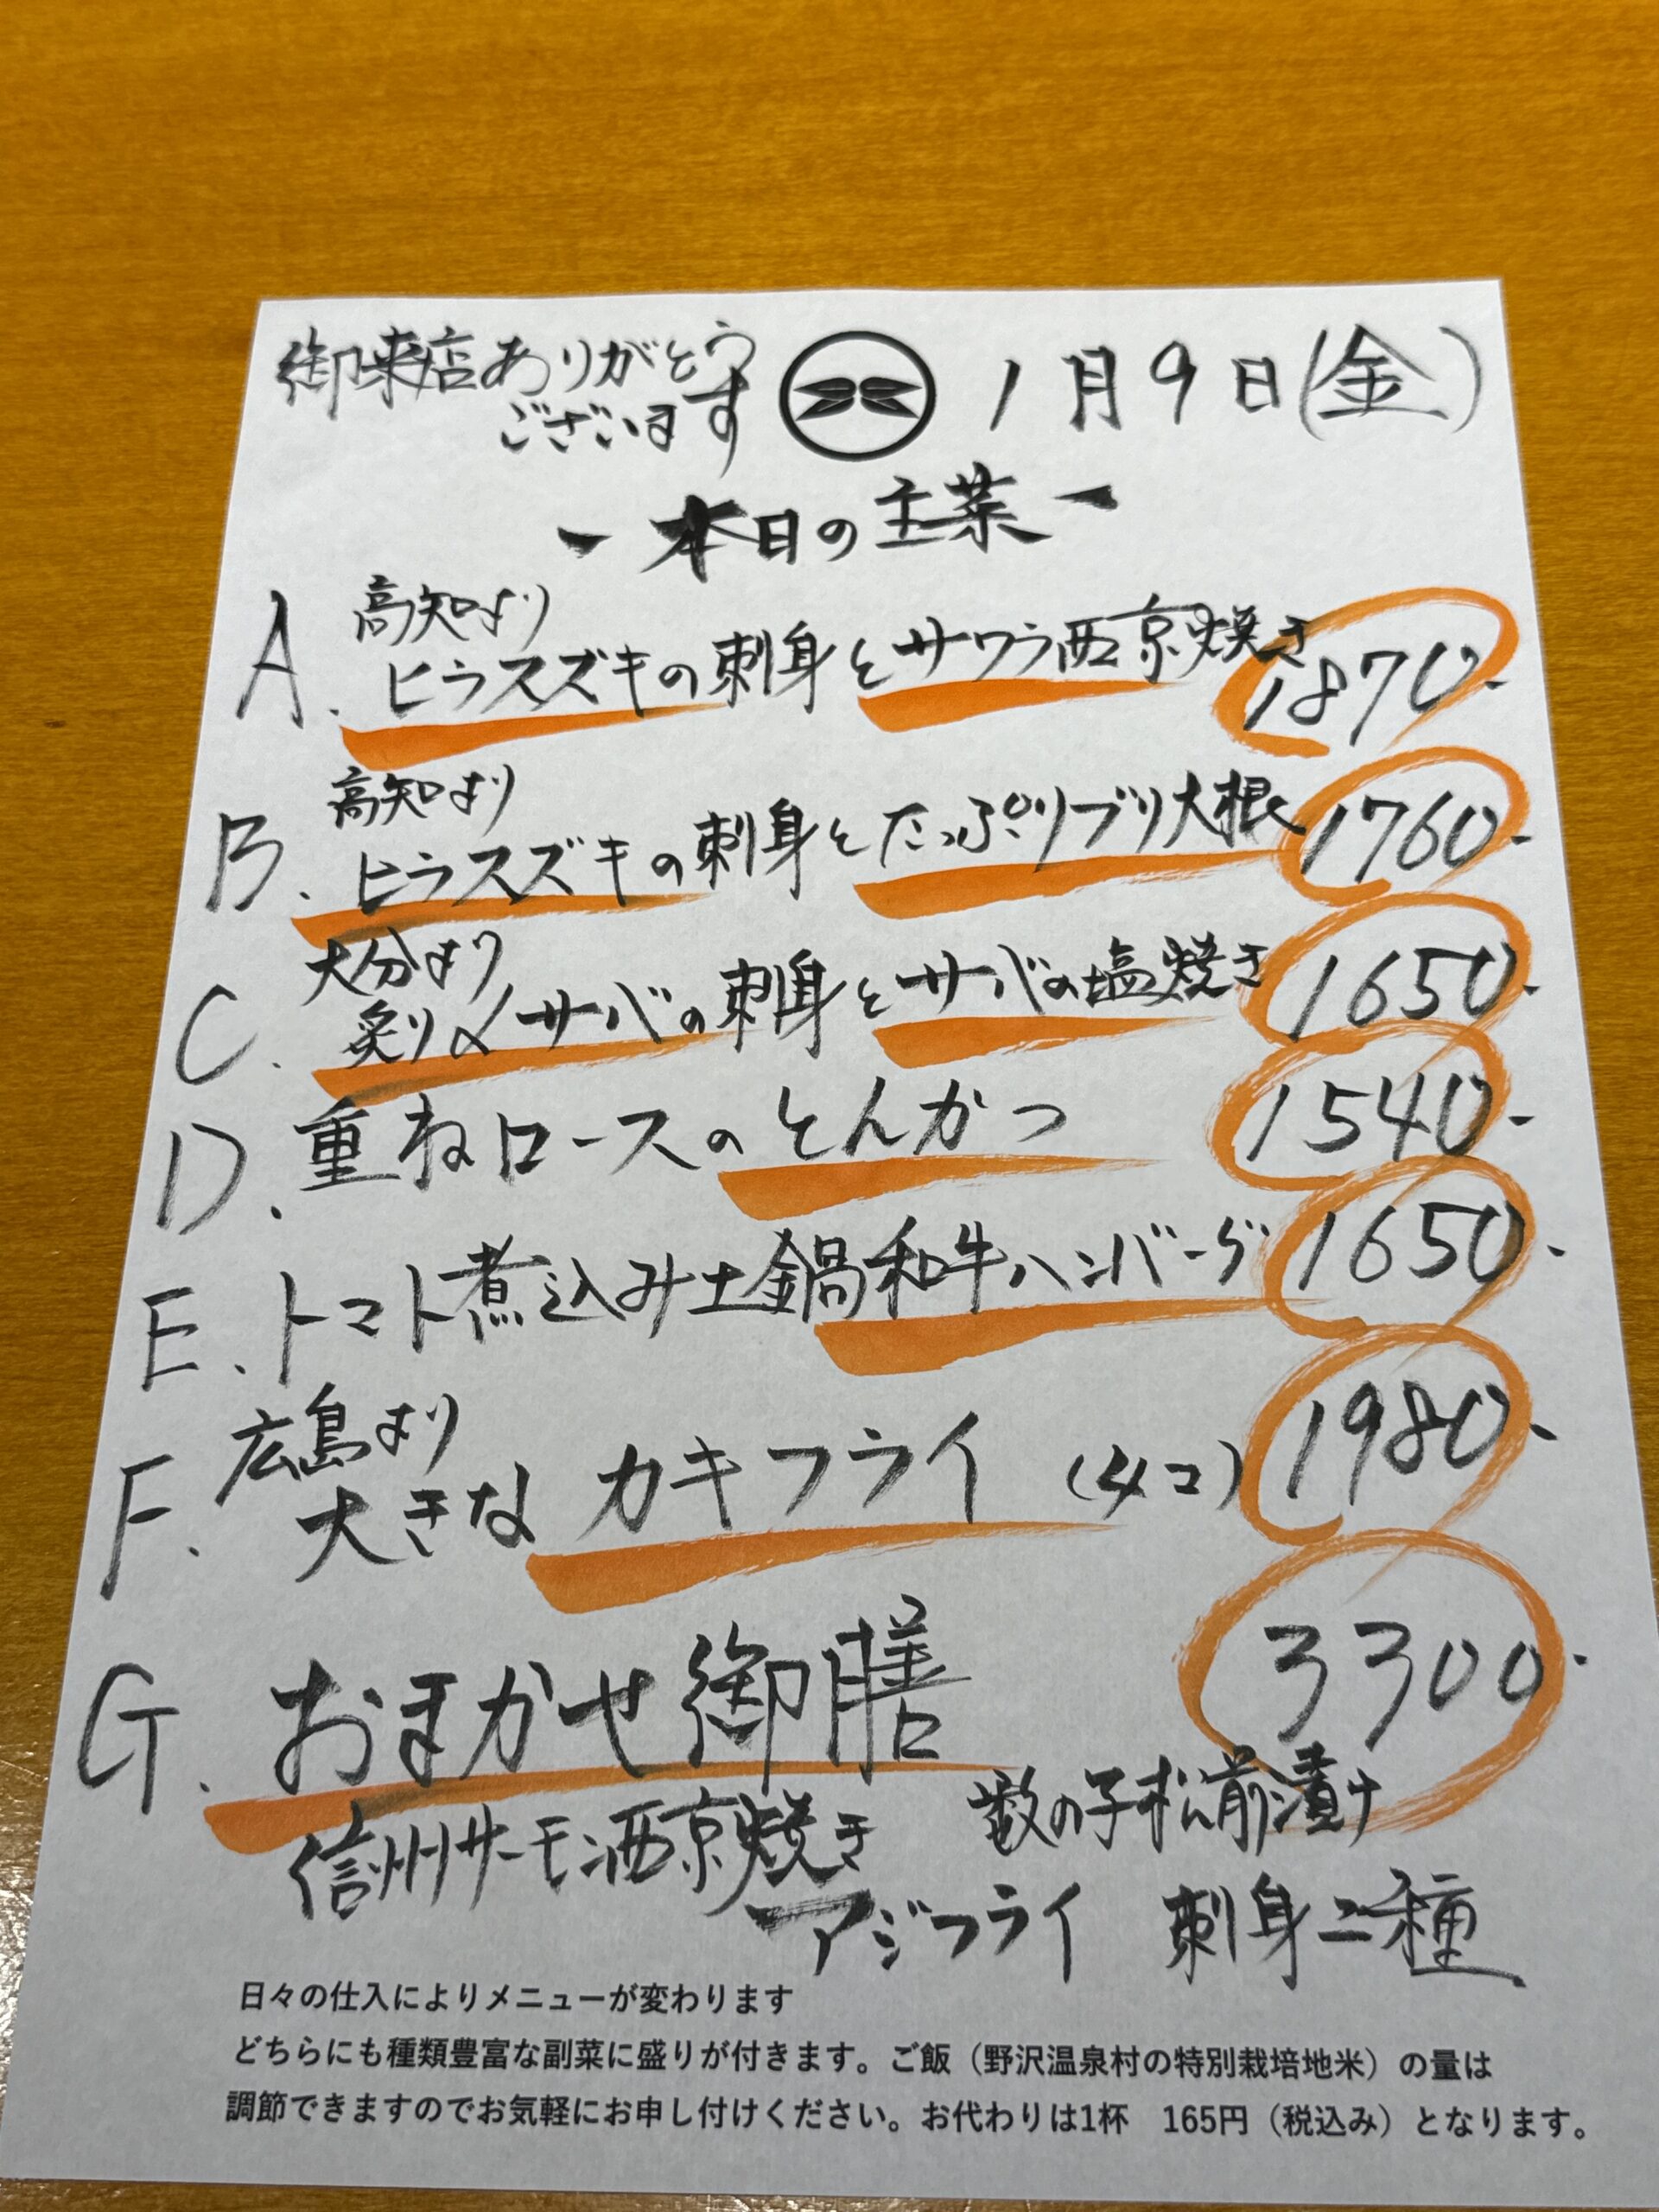 御来店ありがとう
ございます
1月9日(金)
-本日の主菜-
高知より
A. ヒラスズキの刺身とサワラ西京焼き 1870-
高知より
B. ヒラスズキの刺身とたっぷりブリ大根 1760-
大分より
C. 炙り〆サバの刺身とサバの塩焼き 1650-
D. 重ねロースのとんかつ 1540-
E. トマト煮込み土鍋和牛ハンバーグ 1650-
広島より
F. 大きなカキフライ (4コ) 1980-
G. おまかせ御膳 3300-
信州サーモン西京焼き 数の子松前漬け
アジフライ 刺身二種
日々の仕入によりメニューが変わります
どちらにも種類豊富な副菜に盛りが付きます。ご飯（野沢温泉村の特別栽培地米）の量は
調節できますのでお気軽にお申し付けください。お代わりは1杯　165円（税込み）となります。